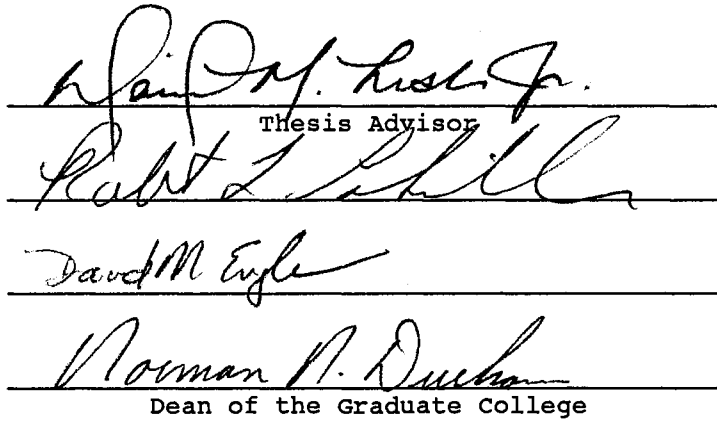 David M. Leslie Jr.
Thesis Advisor
Robert L.
David M Engle
Norman N. Durham
Dean of the Graduate College